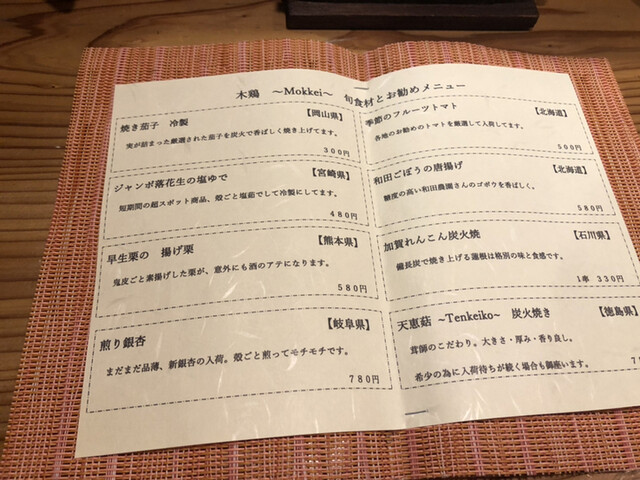 木鶏 ～Mokkei～ 旬食材とお勧めメニュー
焼き茄子 冷製 【岡山県】
実が詰まった厳選された茄子を炭火で香ばしく焼き上げてます。
300円
ジャンボ落花生の塩ゆで 【宮崎県】
短期間の超スポット商品、殻ごと塩茹でして冷製にしてます。
480円
早生栗の 揚げ栗 【熊本県】
鬼皮ごと素揚げした栗が、意外にも酒のアテになります。
580円
煎り銀杏 【岐阜県】
まだまだ品薄、新銀杏の入荷。殻ごと煎ってモチモチです。
780円
季節のフルーツトマト 【北海道】
各地のお勧めのトマトを厳選して入荷してます。
500円
和田ごぼうの唐揚げ 【北海道】
糖度の高い和田農園さんのゴボウを香ばしく。
580円
加賀れんこん炭火焼 【石川県】
備長炭で焼き上げる蓮根は格別の味と食感です。
1本 330円
天恵菇 ～Tenkeiko～ 炭火焼き 【徳島県】
茸師のこだわり。大きさ・厚み・香り良し。
希少の為に入荷待ちが続く場合も御座います。